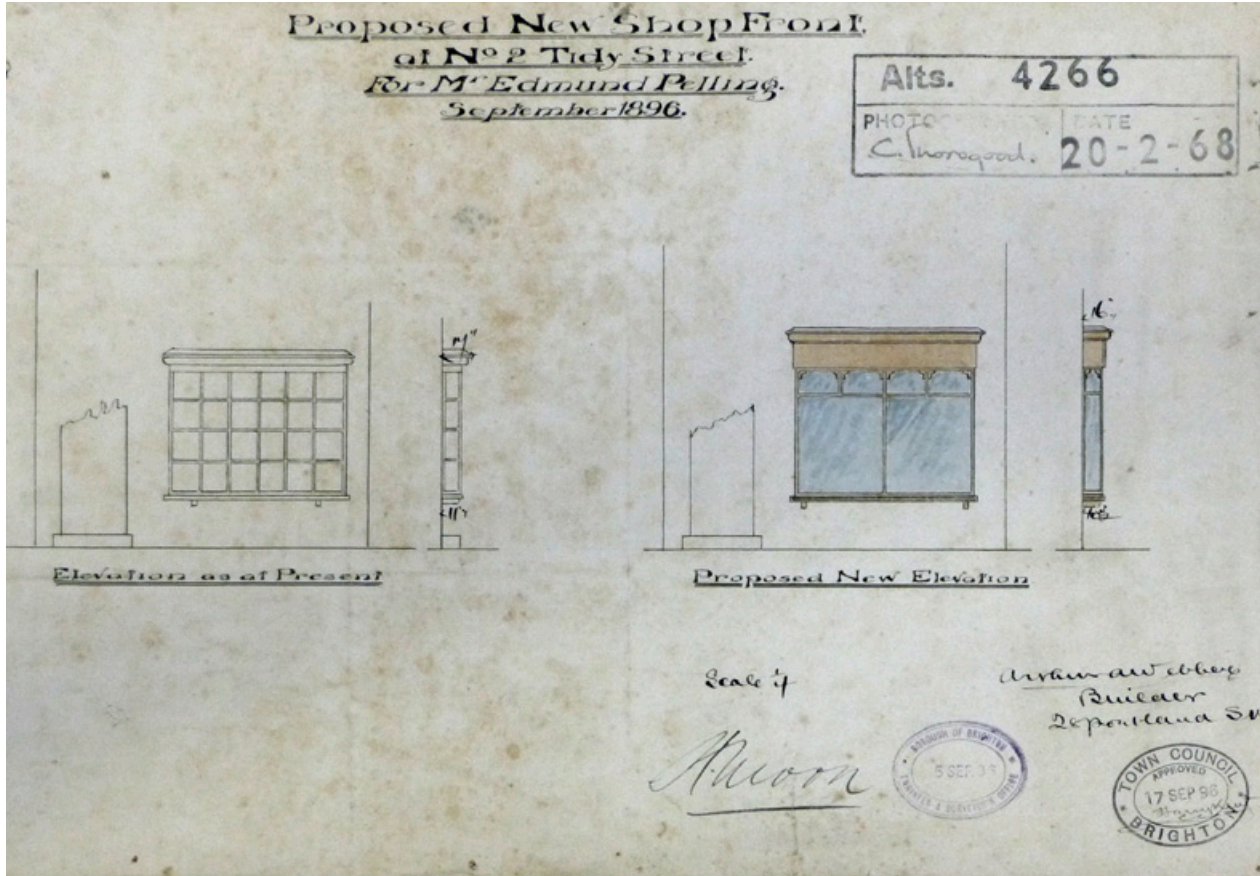 Proposed New Shop Front,
at No 2 Tidy Street.
For Mr Edmund Pelling.
September 1896.
Alts. 4266
PHOTO
DATE
C. Thorogood.
20-2-68
Elevation as at Present
Proposed New Elevation
Scale ¼
Builder
28 Portland St
BOROUGH OF BRIGHTON
5 SEP 96
ENGINEER & SURVEYOR'S OFFICE
TOWN COUNCIL
APPROVED
17 SEP 96
BRIGHTON